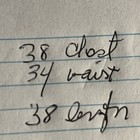 38 chest
34 waist
38 length